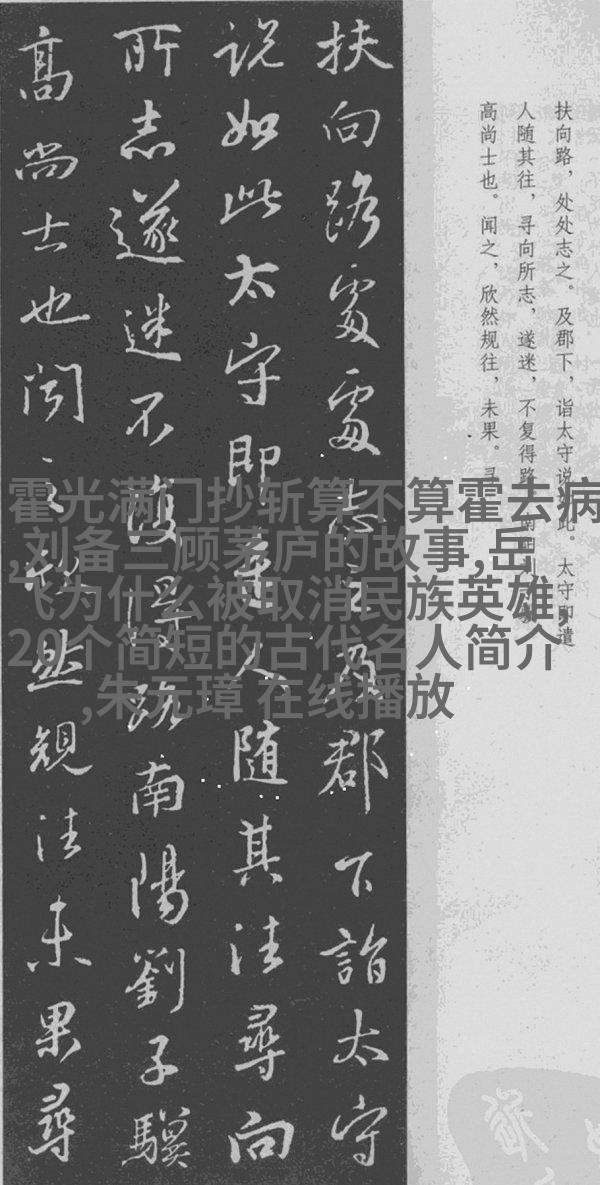 扶向路，处处志之。及郡下，诣太守说如此。太守即遣
人随其往，寻向所志，遂迷，不复得路。南阳刘子骥，
高尚士也。闻之，欣然规往，未果。寻
扶向路處處志之及郡下詣太守
説如此太守即遣人隨其往尋向
所志遂迷不復得路南陽劉子驥
高尚士也聞之欣然規往未果尋
霍光满门抄斩算不算霍去病
,刘备三顾茅庐的故事,岳
飞为什么被取消民族英雄
20个简短的古代名人简介
,朱元璋 在线播放